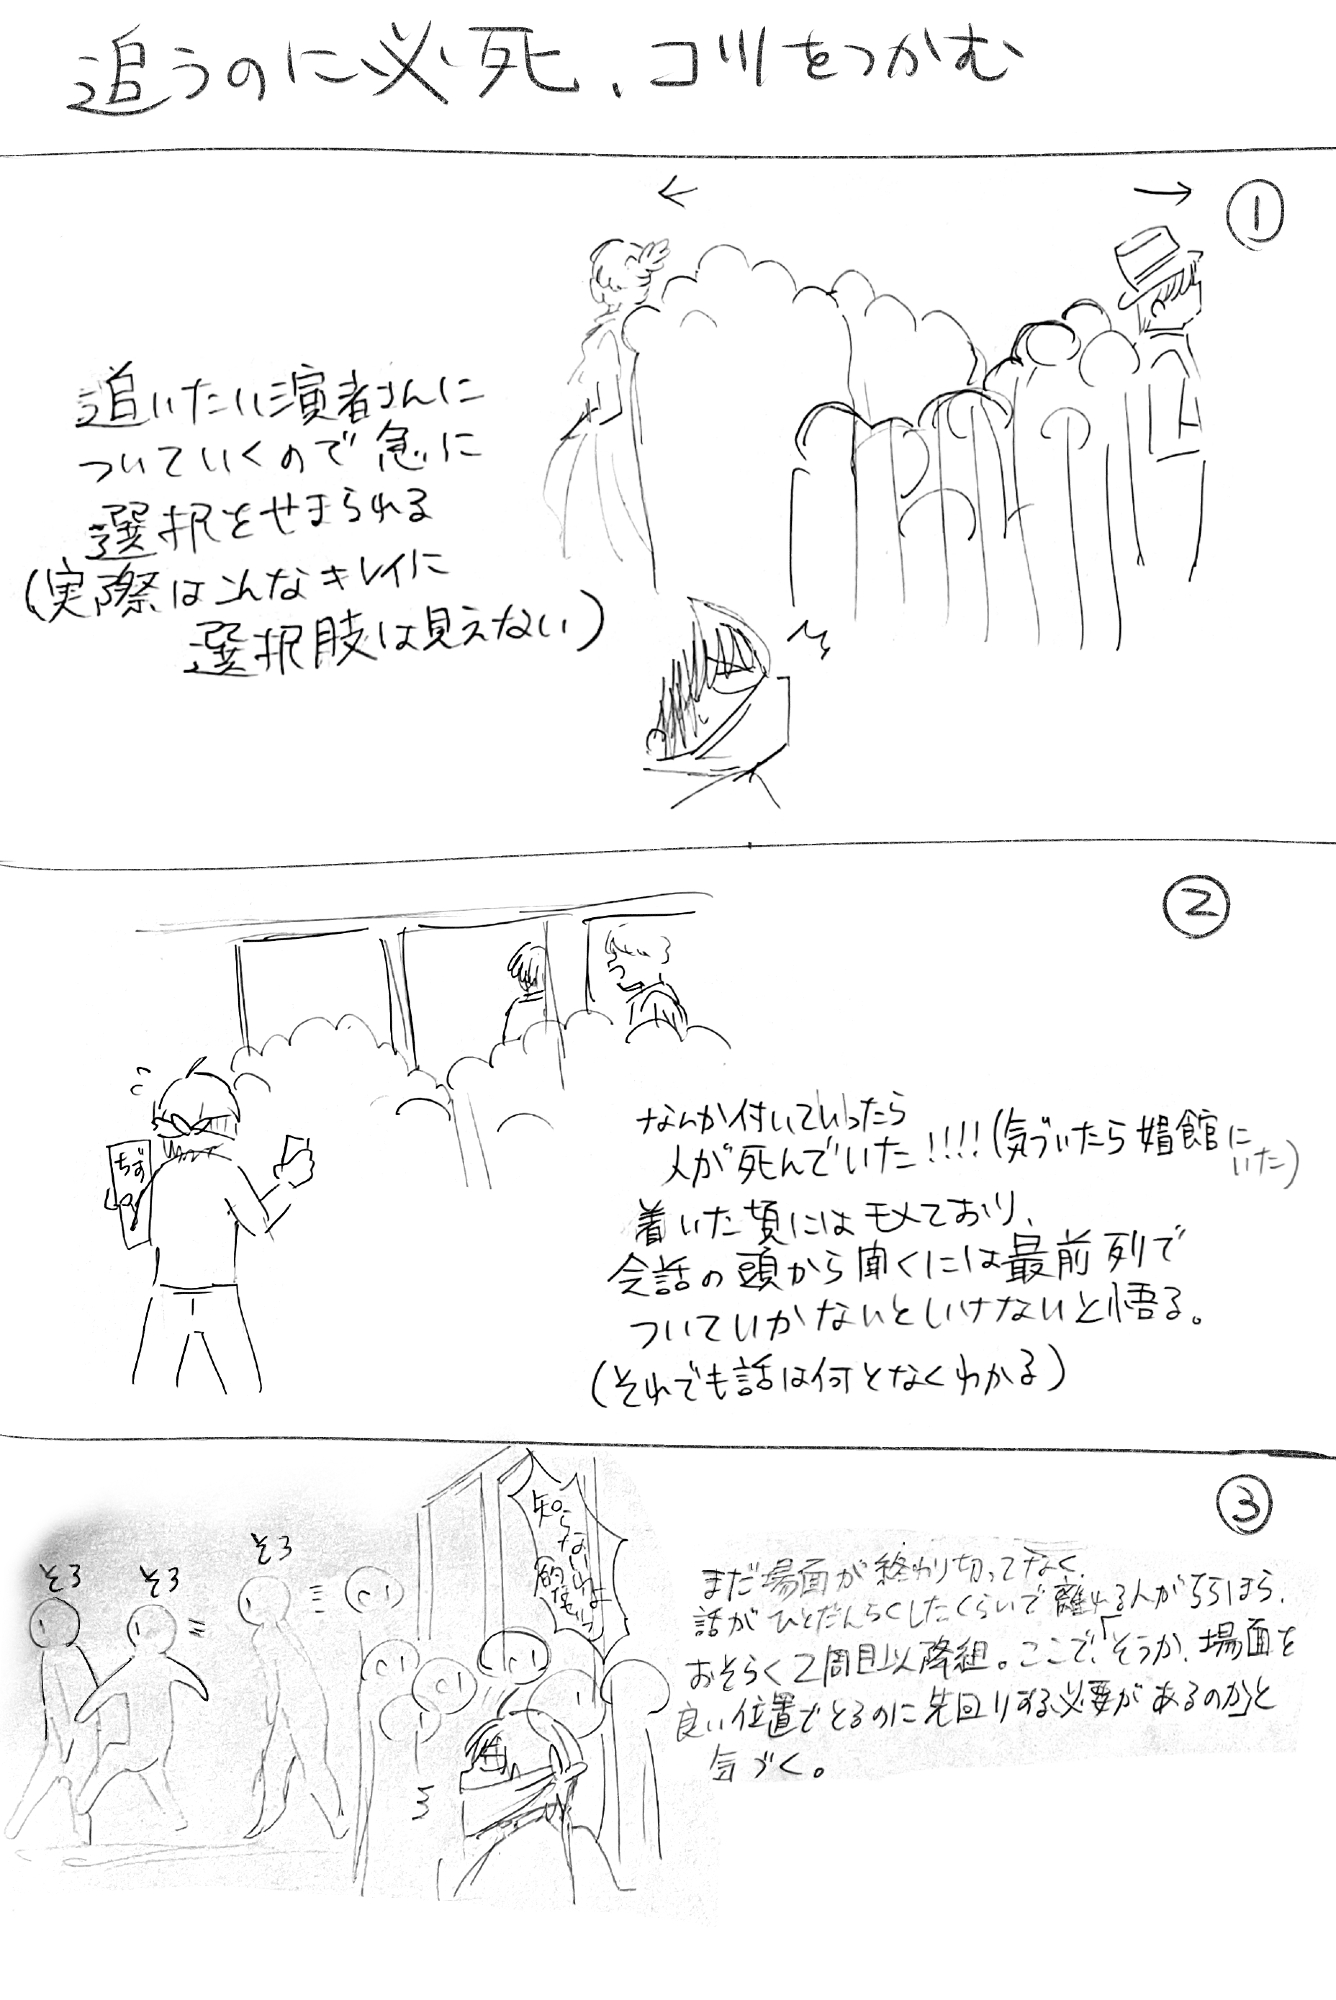 追うのに必死、コツをつかむ
←
→
①
追いたい演者さんに
ついていくので急に
選択をせまられる
(実際はこんなキレイに
選択肢は見えない)
②
ちず
なんか付いていったら
人が死んでいた!!!!(気づいたら娼館に
いた)
着いた頃にはモメており、
会話の頭から聞くには最前列で
ついていかないといけないと悟る。
(それでも話は何となくわかる)
③
そろ
そろ
そろ
知らないわよ
的なもの
まだ場面が終わり切ってなく、
話がひとだんらくしたくらいで離れる人がちらほら、
おそらく2周目以降組。ここで、「そうか、場面を
良い位置でとるのに先回りする必要があるのか」と
気づく。